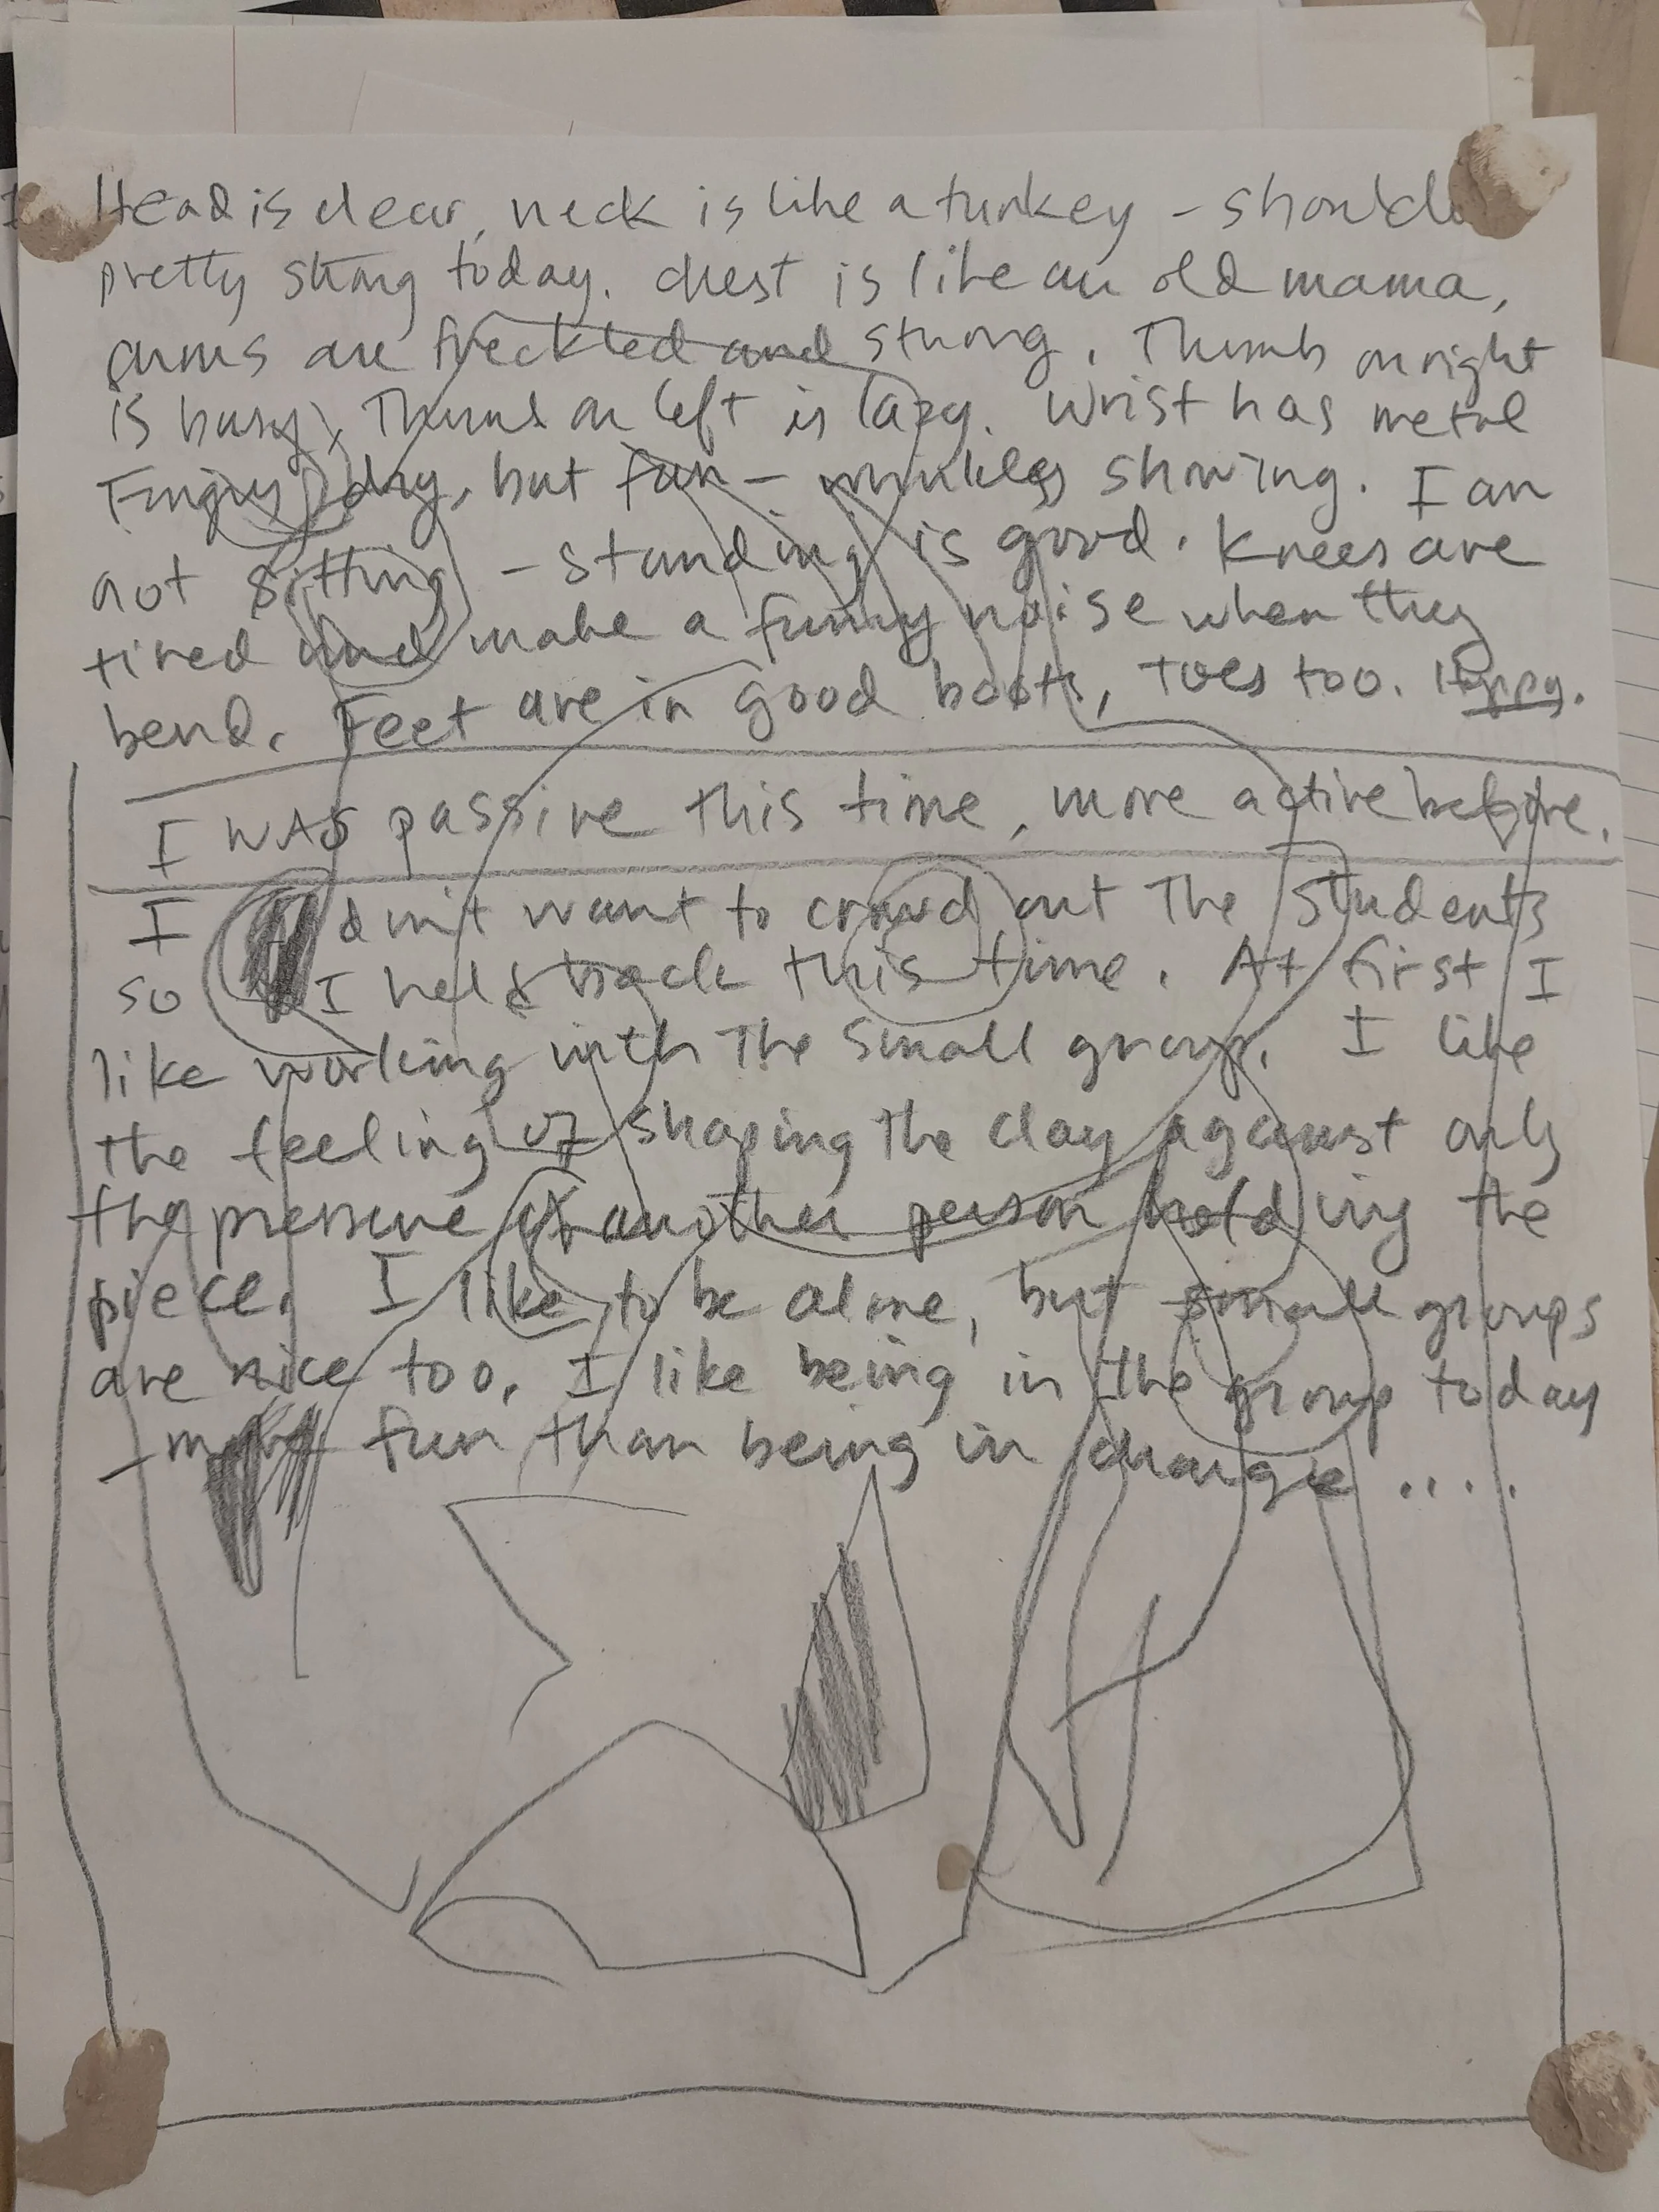 Head is clear, neck is like a turkey - should
pretty strong today. Chest is like an old mama,
arms are freckled and strong. Thumb on right
is busy, Thumb on left is lazy. Wrist has metal
Fingers dry, but fun - wrinkles showing. I am
not sitting - standing is good. Knees are
tired and make a funny noise when they
bend. Feet are in good boots, toes too. Happy.
I WAS passive this time, more active before.
I didn't want to crowd out The Students
so I held back this time. At first I
like working with The small group. I like
the feeling of shaping the clay against only
the pressure of another person holding the
piece. I like to be alone, but small groups
are nice too. I like being in the group today
- more fun than being in charge ....